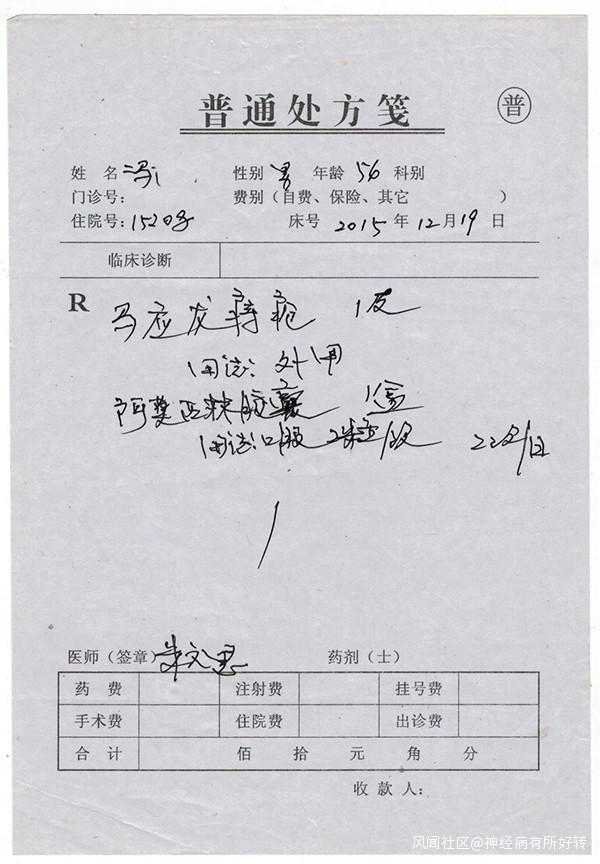 普通处方笺 普
姓 名 性别 男 年龄 56 科别
门诊号: 费别（自费、保险、其它 ）
住院号: 床号 2015 年 12 月 19 日
临床诊断
R 马应龙痔疮 1支
用法: 外用
阿莫西林胶囊 1盒
用法: 口服 2粒/次 2次/日
医师（签章） 朱文 药剂（士）
药 费 注射费 挂号费
手术费 住院费 出诊费
合 计 佰 拾 元 角 分
收 款 人:
风闻社区@神经病有所好转